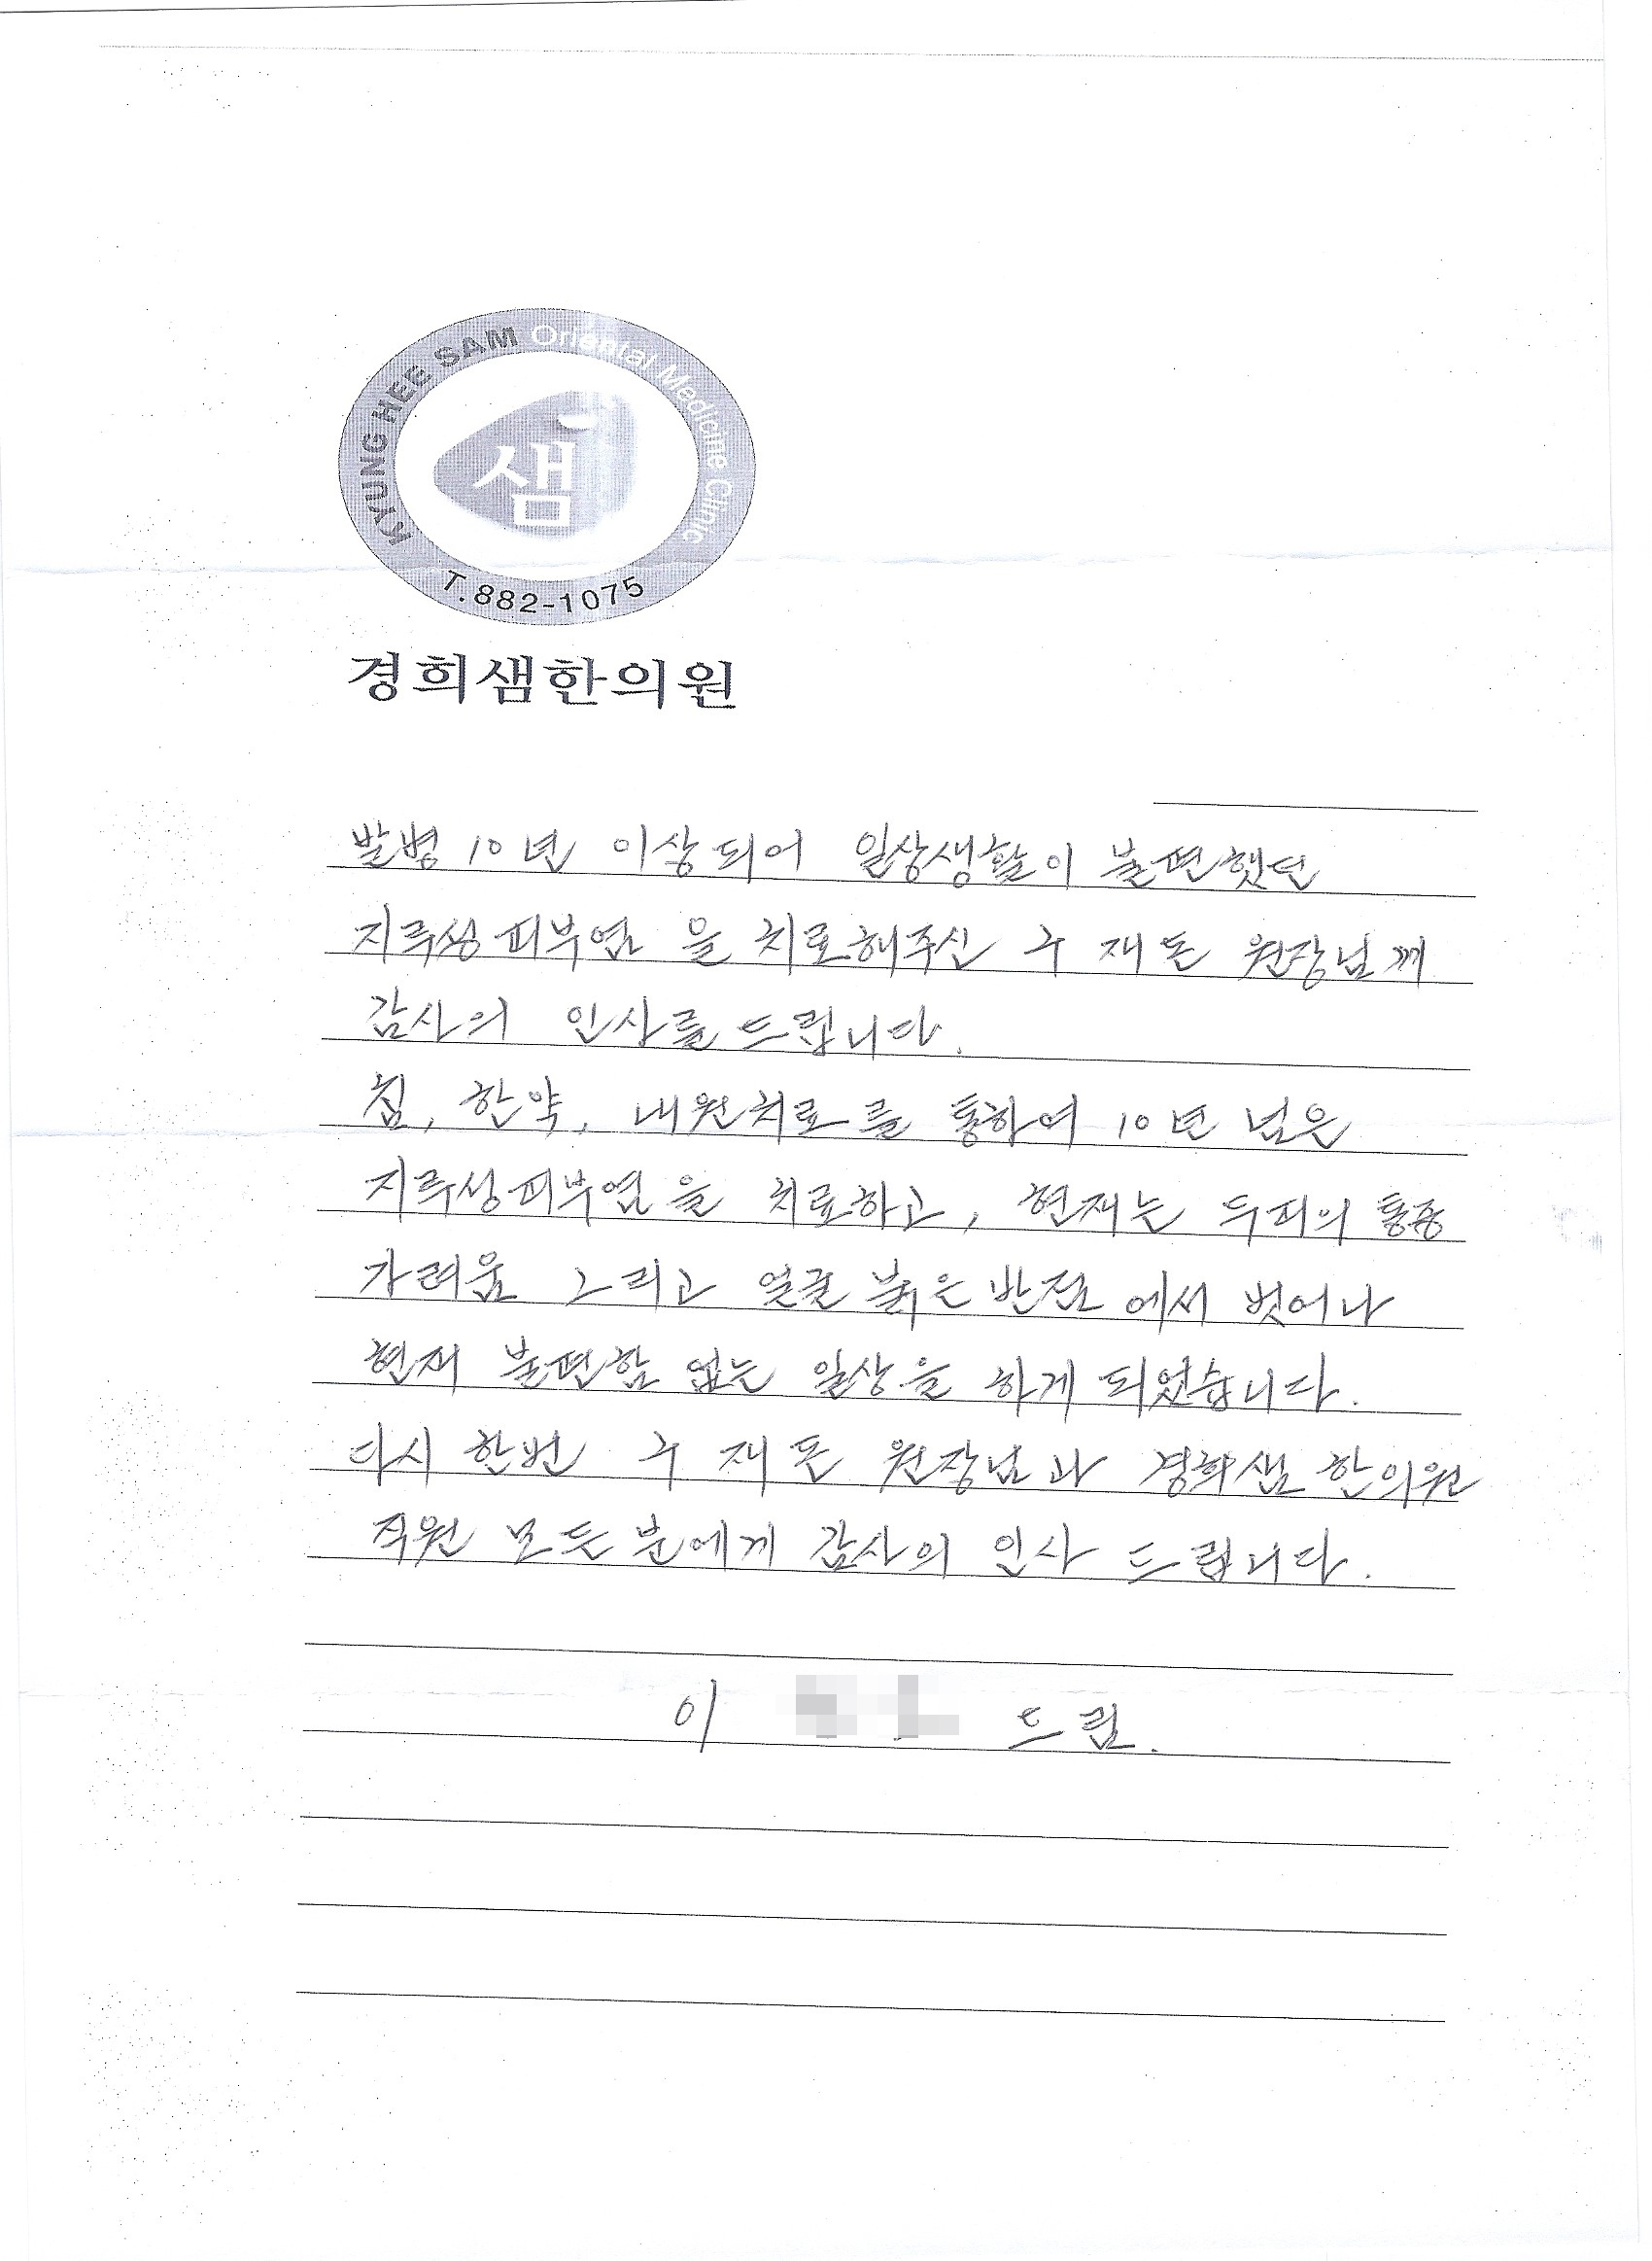 KYUNG HEE SAM Oriental Medicine Clinic
샘
T.882-1075
경희샘한의원
발병 10년 이상되어 일상생활이 불편했던
지루성피부염 을 치료해주신 구 재 돈 원장님께
감사의 인사를 드립니다.
침, 한약, 내원치료를 통하여 10년 넘은
지루성피부염을 치료하고, 현재는 두피의 통증
가려움 그리고 얼굴 붉은 반점 에서 벗어나
현재 불편함 없는 일상을 하게 되었습니다.
다시 한번 구 재 돈 원장님과 경희샘 한의원
직원 모든 분에게 감사의 인사 드립니다.
이 드림.